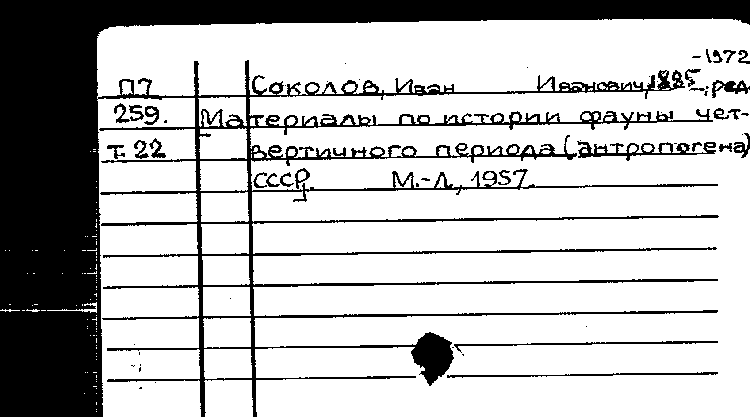 -1972
П7 Соколов, Иван Иванович, 1885-, ред.
259. Материалы по истории фауны чет-
т. 22 вертичного периода (антропогена)
СССР. М.-Л., 1957.